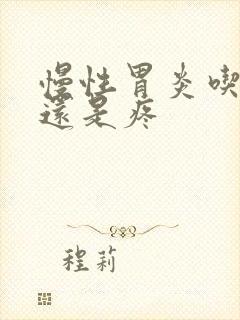 慢性胃炎喫
還是疼
程莉